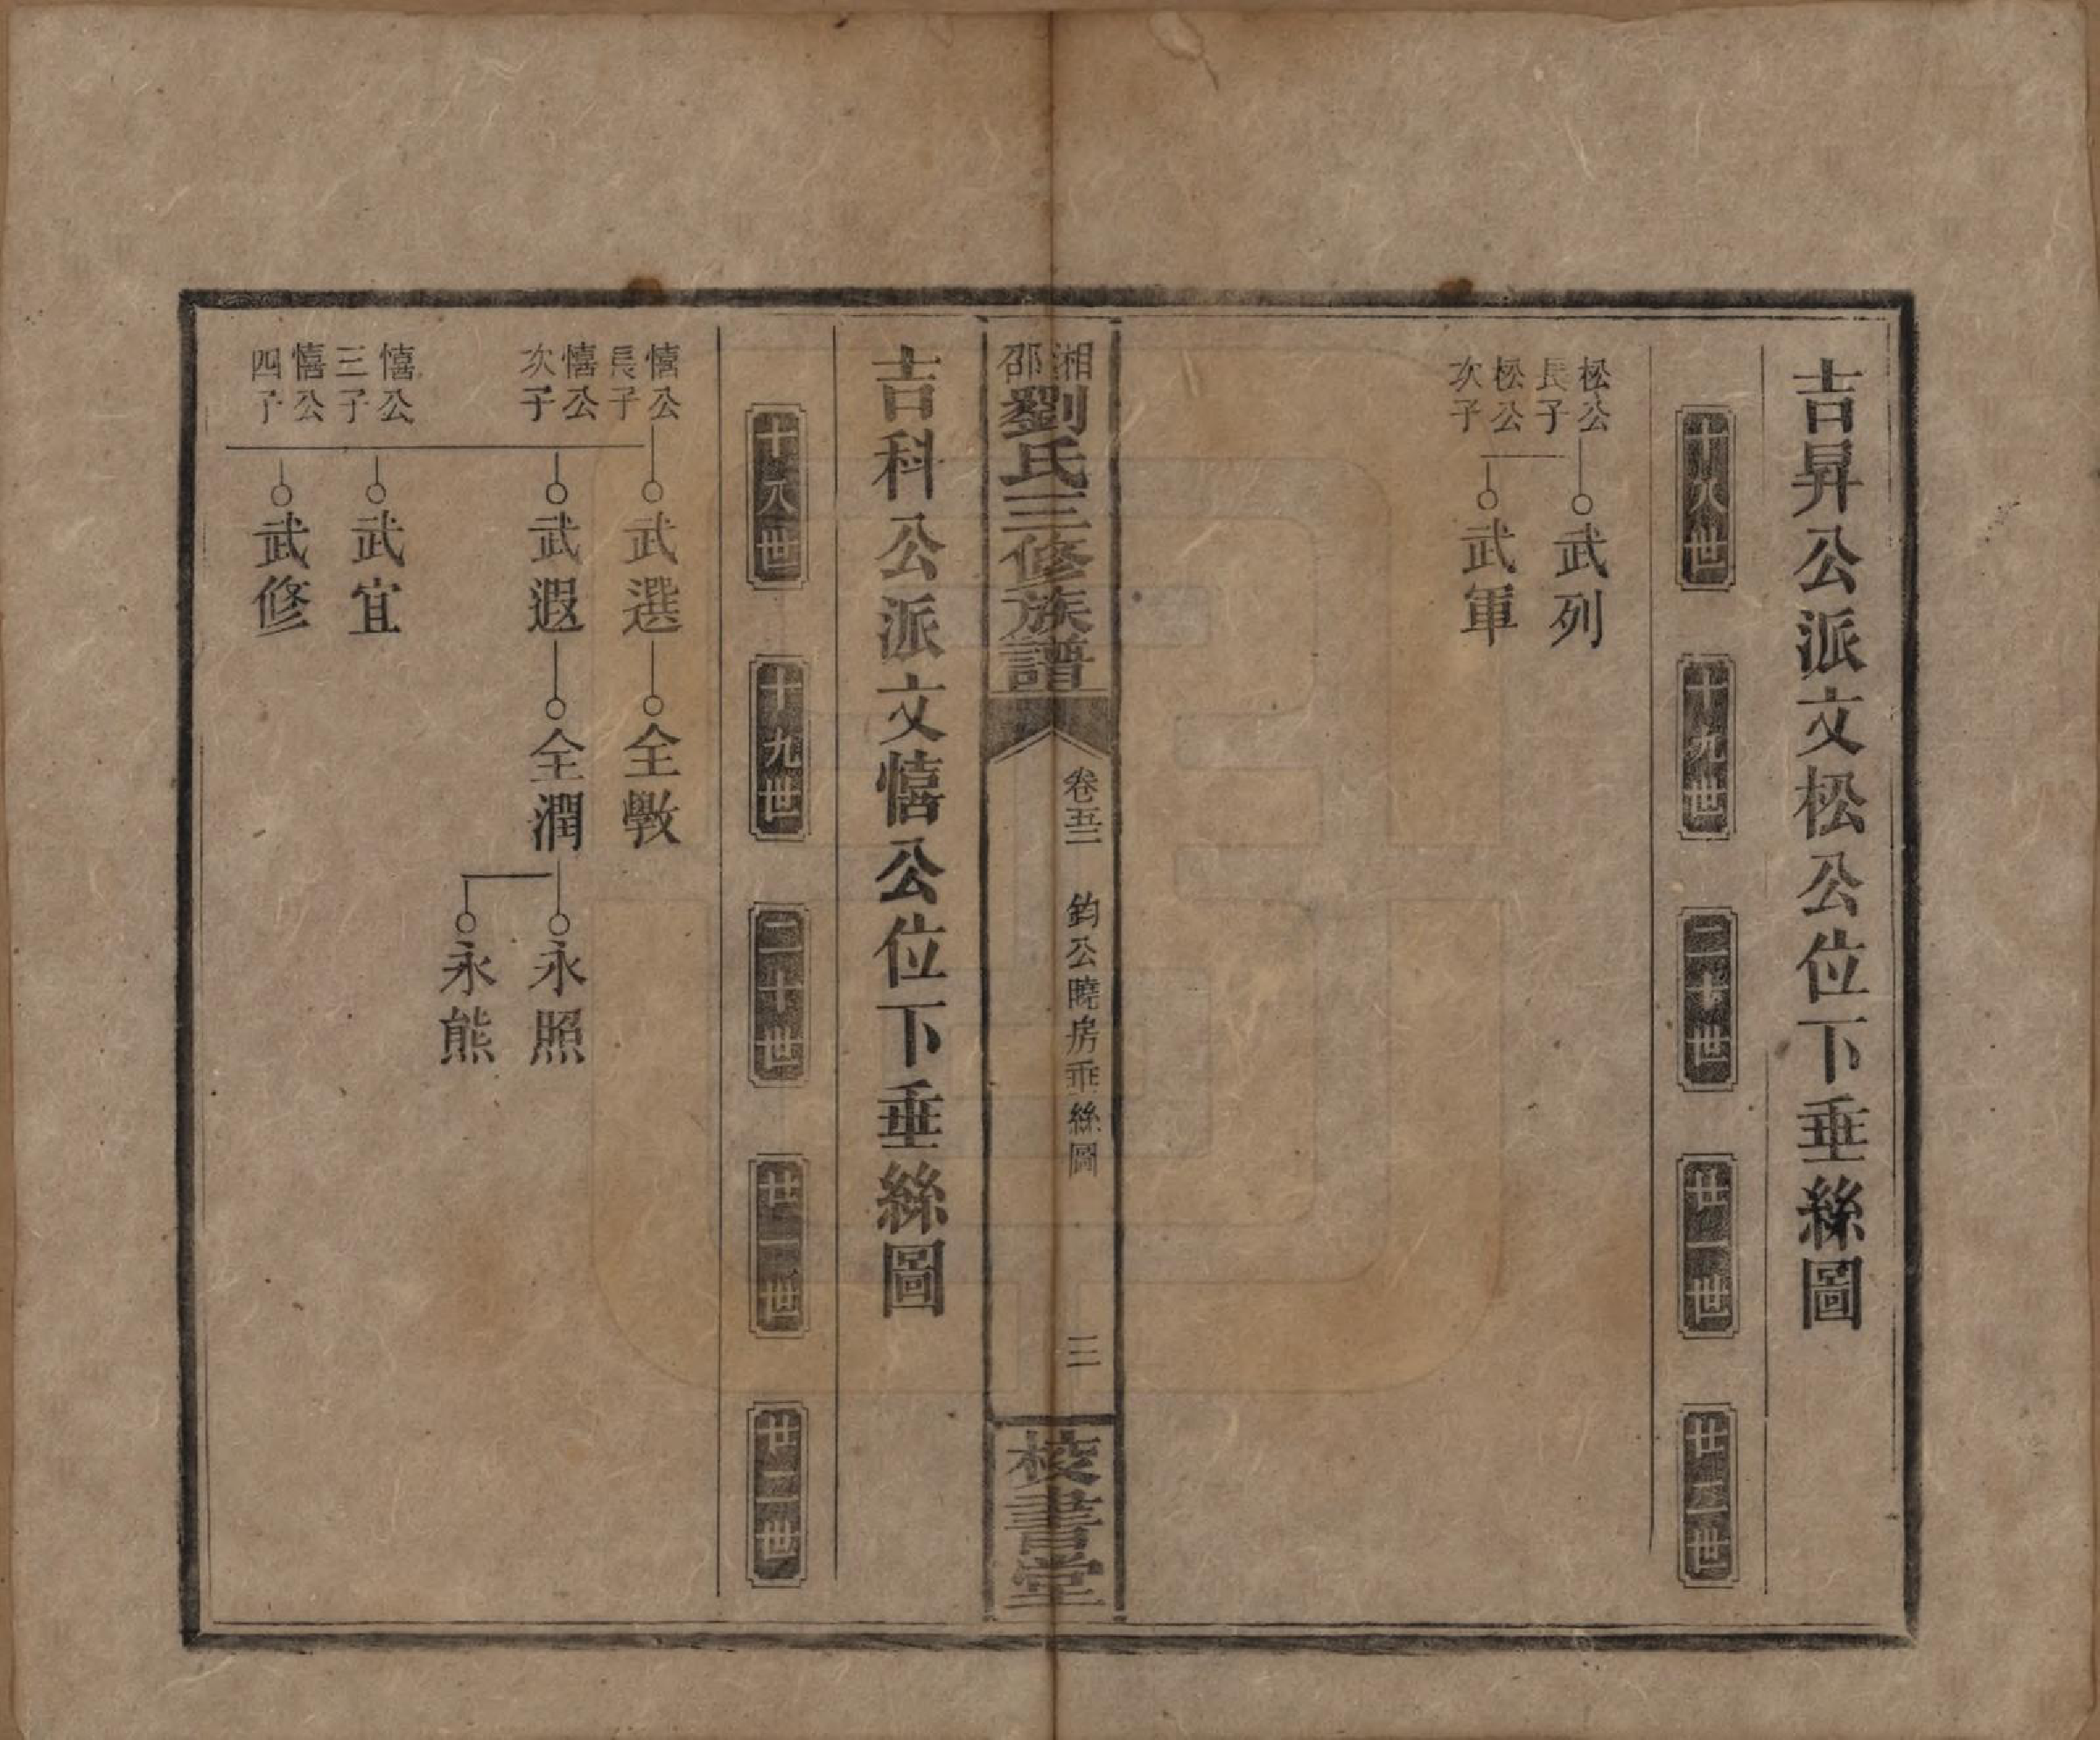 吉昇公派文松公位下垂絲圖
十八世
十九世
二十世
廿一世
廿二世
松公長子
武列
松公次子
武軍
湘邵劉氏三修族譜
卷五二
鈞公曉房垂絲圖
三
校書堂
吉科公派文憘公位下垂絲圖
十八世
十九世
二十世
廿一世
廿二世
憘公長子
武選
全斆
憘公次子
武遐
全潤
永照
永熊
憘公三子
武宜
憘公四子
武修